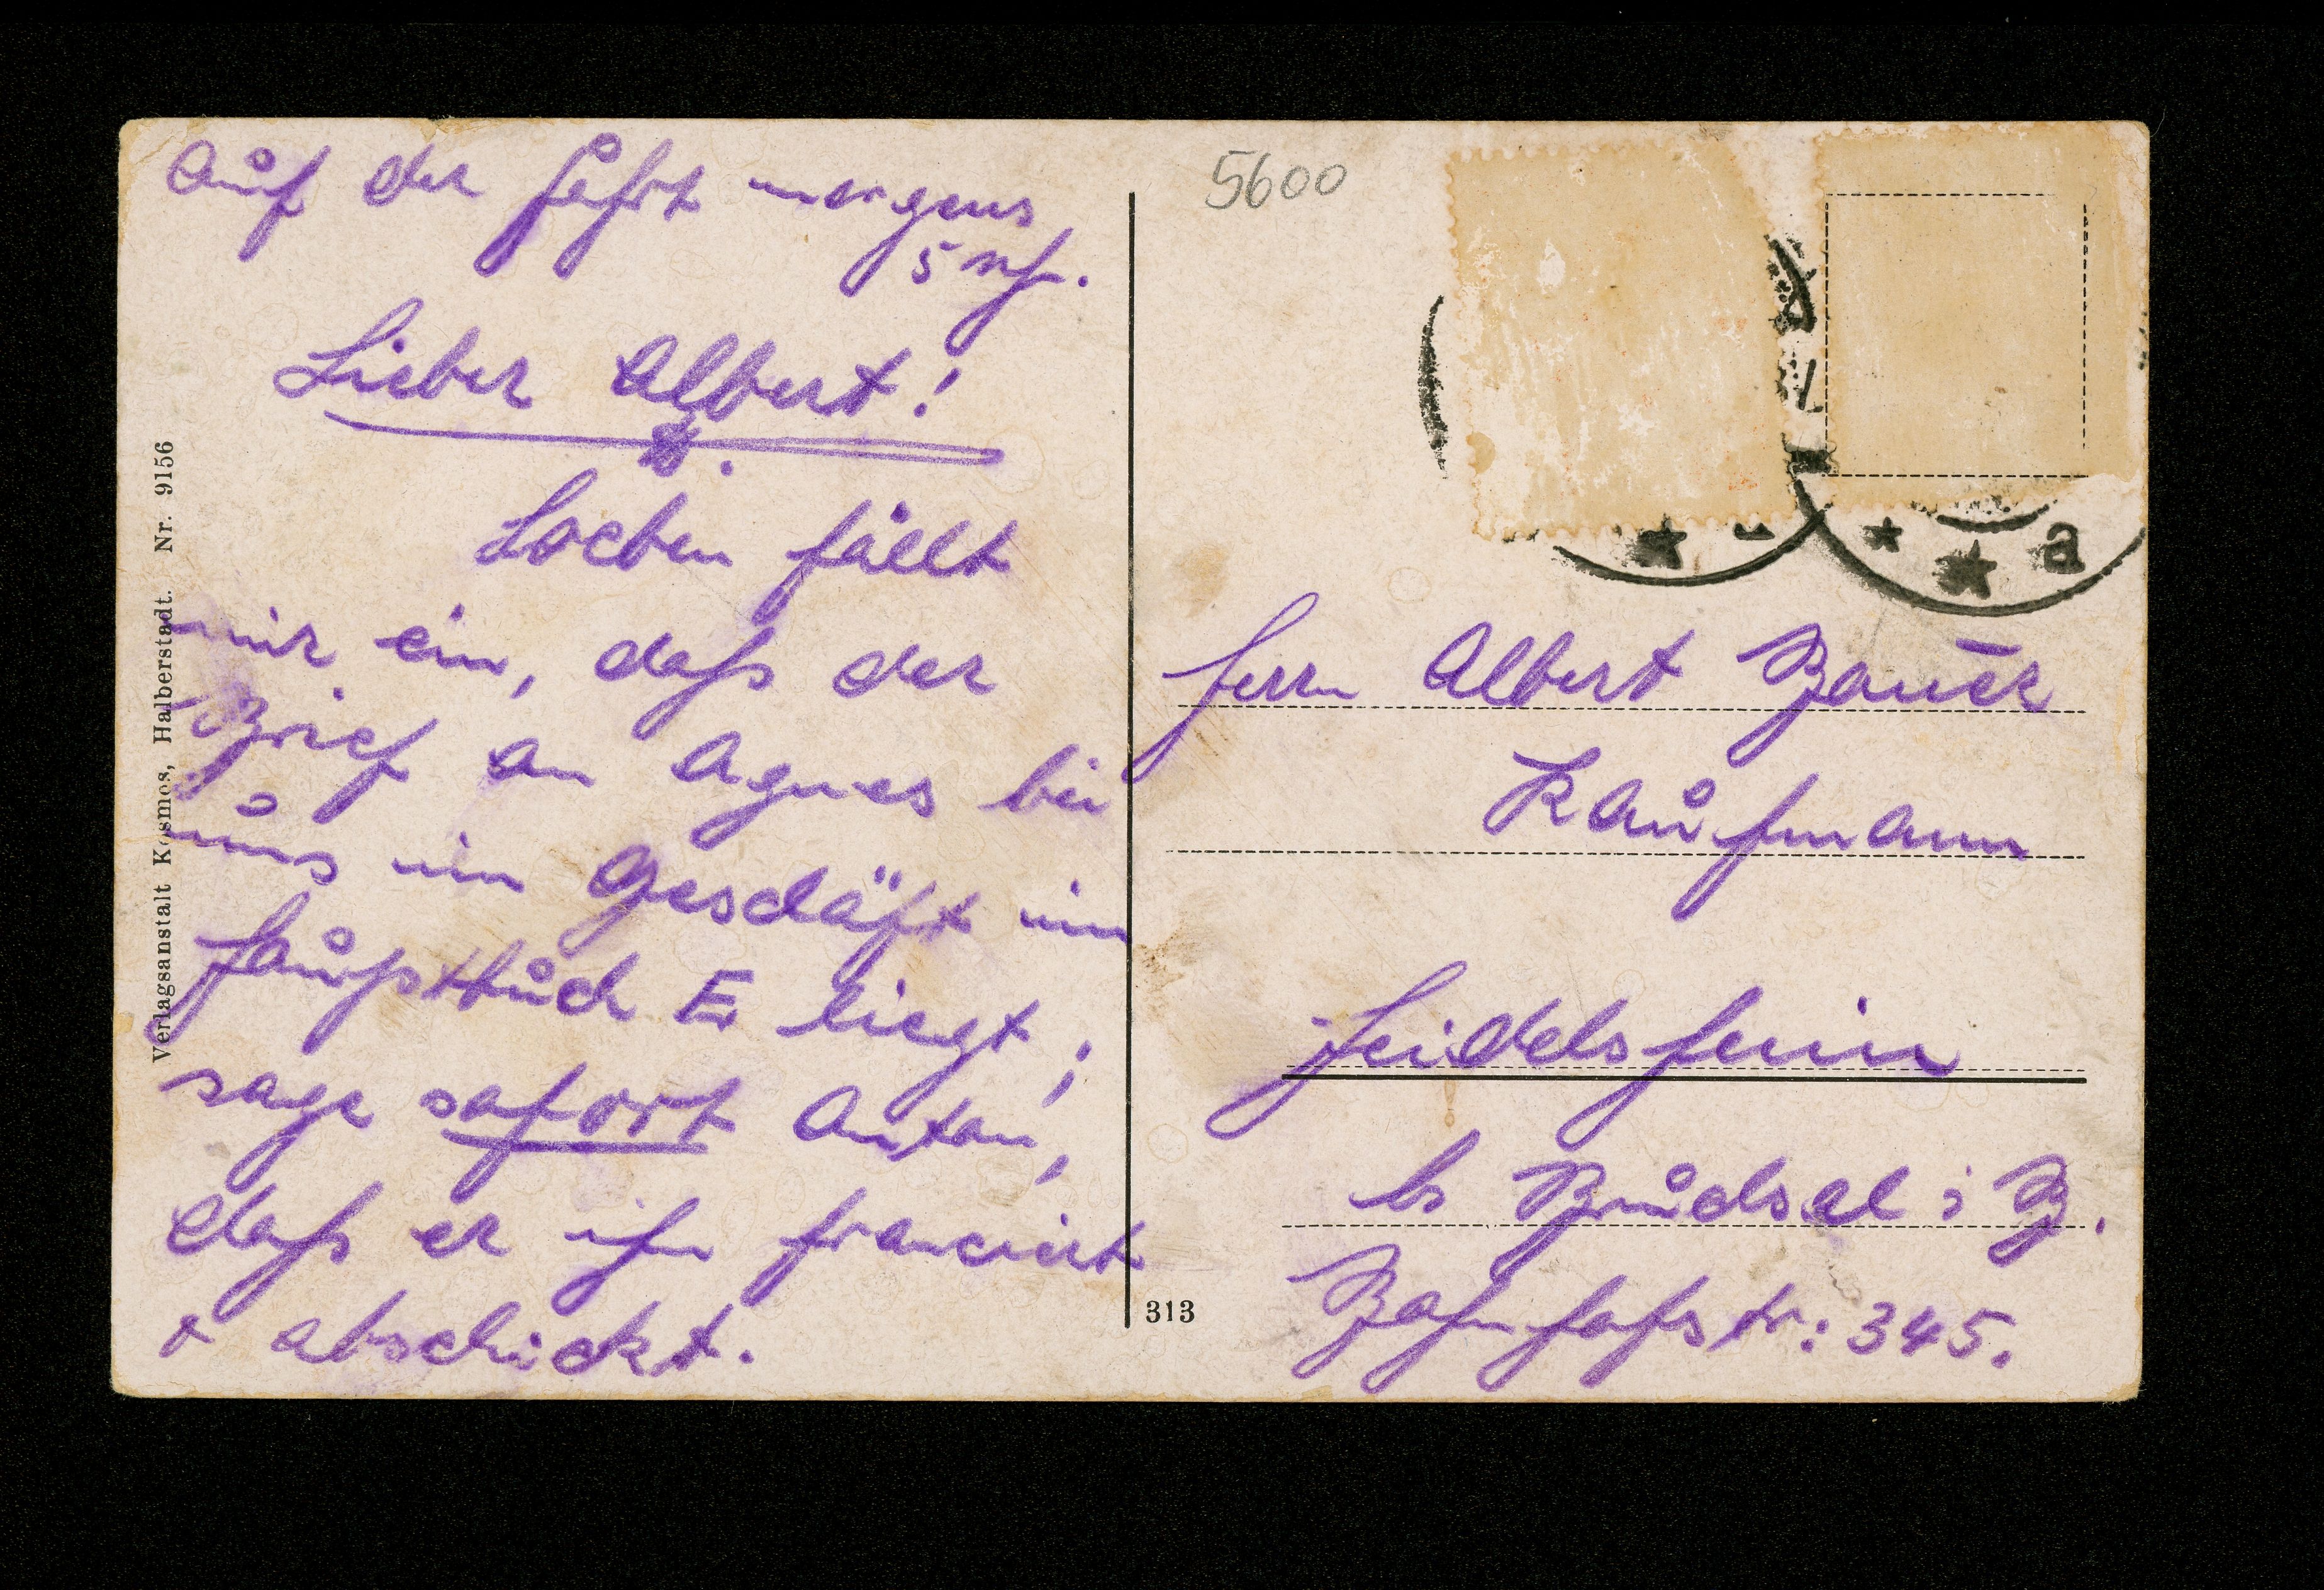 Auf der Fahrt morgens
5 Uhr.
Lieber Albert!
Soeben fällt
mir ein, daß der
Brief an Agnes bei
uns im Geschäft im
Hauptbuch E liegt;
sage sofort Anton,
daß er ihn franciert
& abschickt.
Verlagsanstalt Kosmos, Halberstadt. Nr. 9156
313
5600
a
Herrn Albert Bauer
Kaufmann
Heidelsheim
bs Bruchsal i B.
Bahnhofstr: 345.